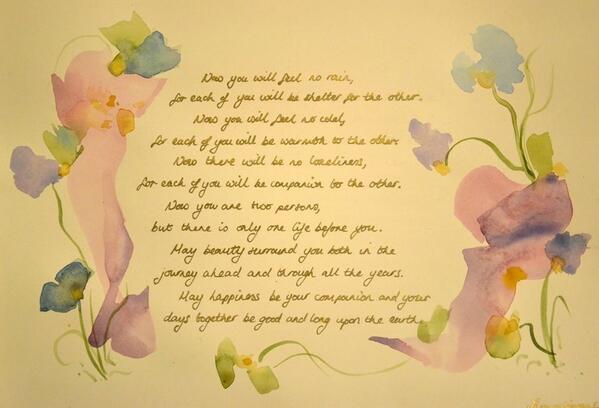 Now you will feel no rain,
for each of you will be shelter for the other.
Now you will feel no cold,
for each of you will be warmth to the other.
Now there will be no loneliness,
for each of you will be companion to the other.
Now you are two persons,
but there is only one life before you.
May beauty surround you both in the
journey ahead and through all the years.
May happiness be your companion and your
days together be good and long upon the earth.